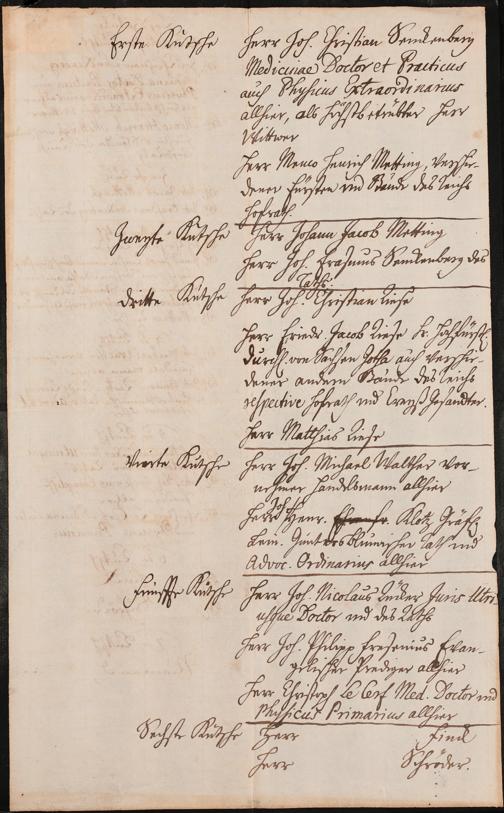 Erste Kutsche Herr Joh. Christian Senckenberg
Medicinae Doctor et Practicus
auch Physicus Extraordinarius
allhier, als höchstbetrübter Herr
Wittwer
Herr Menco Henrich Metting, verschie-
dener Fürsten und Stände des Reichs
Hofrath.
Zweyte Kutsche Herr Johann Jacob Metting
Herr Joh. Erasmus Senckenberg des
Raths.
dritte Kutsche Herr Joh. Christian Riese
Herr Friedr. Jacob Riese Hochfürstl.
Durchl. von Sachsen Gotha auch verschie-
dener andern Stände des Reichs
respective Hofrath und Gesandter.
Herr Matthias Riese
Vierte Kutsche Herr Joh. Michael Walther vor-
nehmer Handelsmann allhier
Herr Joh. Henr. Klotz, Gräfl.
Rath und
Advoc. Ordinarius allhier
Fünffte Kutsche Herr Joh. Nicolaus Juris Utri
usque Doctor und des Raths
Herr Joh. Philipp Fresenius Evan-
gelischer Prediger allhier
Herr Christoph Le Cerf Med. Doctor und
Physicus Primarius allhier
Sechste Kutsche Herr
Herr Schröder.